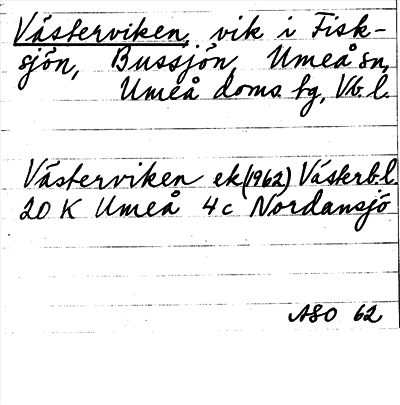 Västerviken, vik i Fisk-
sjön, Bussjön, Umeå sn,
Umeå doms.fg, Vb.l.
Västerviken ek(1962) Västerb.l.
20 K Umeå 4c Nordansjö
ASO 62